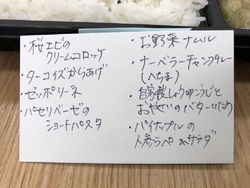 ・桜エビの
クリームコロッケ
・ターコイズからあげ
・ゼッポリーネ
・パセリベーゼの
ショートパスタ
・お野菜ナムル
・ナーベラーチャンプルー
(へちま)
・自家製しょうゆこうじと
おやさいのバター
・パイナップルの
サラダ